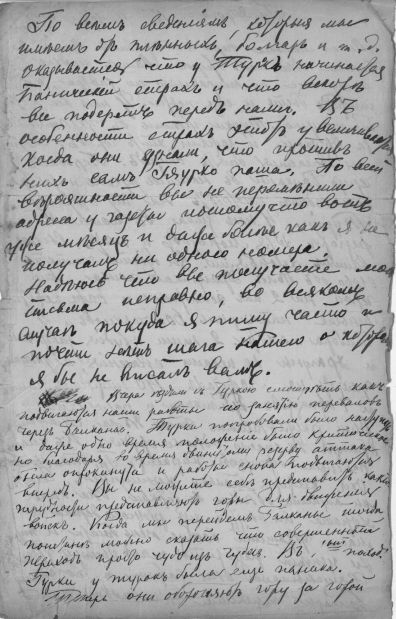 По всемъ сведеніямъ, которыя мы
имѣемъ отъ плѣнныхъ, болгаръ и т. д.
оказывается что у Турокъ начинается
Паническій страхъ и что вскорѣ
все подерётъ передъ нами. Въ
особенности страхъ этотъ увеличился
когда они узнали, что противъ
нихъ самъ Гяурко паша. По всей
вероятности вы не перемѣнили
адреса у газеты потомучто вотъ
уже мѣсяцъ и даже более какъ я не
получалъ ни одного номера.
Надѣюсь что вы получаете мои
письма исправно, во всякомъ
случаѣ покуда я пишу часто и
почти нѣтъ шага нашего о которомъ
я бы не писалъ вамъ.
Вчера ездили съ Гуркою смотрѣть какъ
подвигаются наши работы по занятію переваловъ
черезъ Балканы. Турки попробовали было
и даже одно время положеніе было критическое
но благодаря во время двинутому резерву аттака
была опрокинута и работы снова подвигаются
впередъ. Вы не можете себѣ представить какія
трудности представляютъ горы для движенія
войскъ. Когда мы перейдемъ Балканы тогда
можно сказать что совершенный
переходъ просто чудо изъ чудесъ. Въ поход
Гурки у турокъ была еще паника.
Теперь они обороняютъ гору за горой